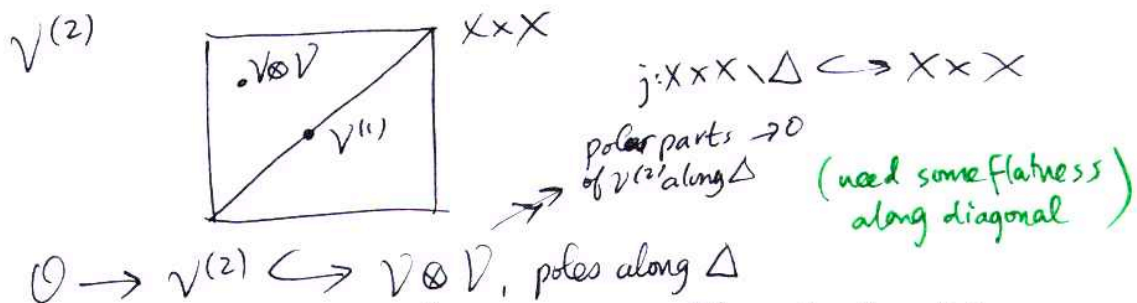 𝒱⁽²⁾
X×X
.𝒱⊗𝒱
𝒱⁽¹⁾
j: X×X∖Δ ↪ X×X
polar parts → 0
of 𝒱⁽²⁾ along Δ
(need some flatness
along diagonal)
𝒪 → 𝒱⁽²⁾ ↪ 𝒱⊗𝒱, poles along Δ